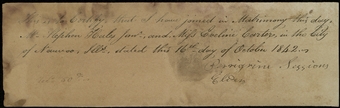 This may Certify, that I have joined in Matrimony this day,
Mr. Stephen Hales Junr. and Miss Eveline Carter, in the City
of Nauvoo, Ills, dated this 16th day of October 1842.
Peregrine Sessions
Elder